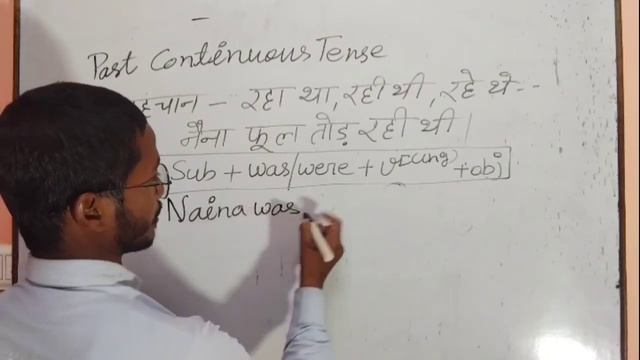 Past Continuous Tense
पहचान - रहा था, रही थी, रहे थे--
नैना फूल तोड़ रही थी।
Sub + was/were + v(ing) + obj
Naina was